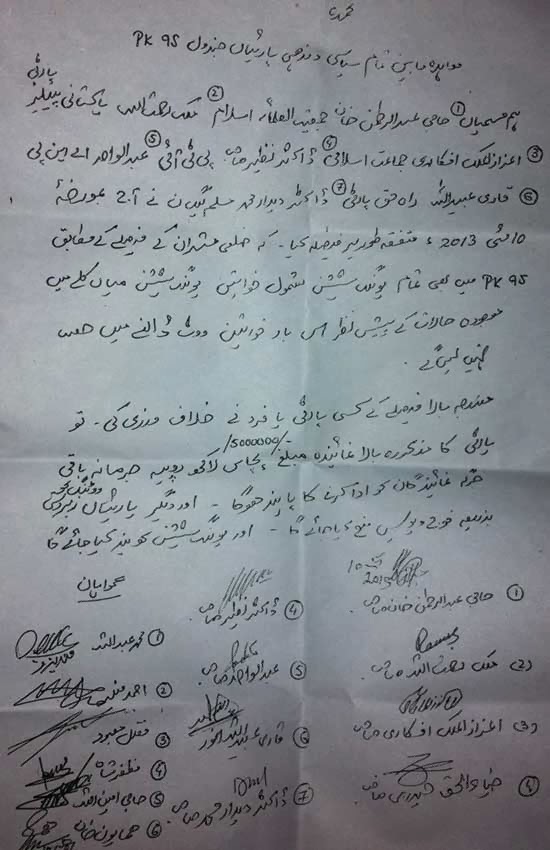 معاہدہ مابین تمام سیاسی و مذہبی پارٹیاں جندول PK 95
ہم مسمیان ① حاجی عبدالرحمٰن خان جمعیت العلمائے اسلام ② ملک بخت اللہ پاکستانی پیپلز پارٹی
③ اعزاز الملک افکاری جماعت اسلامی ④ ڈاکٹر نظیر صاحب پی ٹی آئی ⑤ عبدالواحد اے این پی
⑥ قاری عبیداللہ راہ حق پارٹی ⑦ ڈاکٹر دیدار محمد مسلم لیگ ن نے آج مورخہ
10 مئی 2013ء متفقہ طور پر فیصلہ کیا۔ کہ ضلعی مشران کے فیصلے کے مطابق
PK 95 میں بھی تمام پولنگ سٹیشن بشمول خواتین پولنگ سٹیشن میاں کلے میں
موجودہ حالات کے پیش نظر اس بار خواتین ووٹ ڈالنے میں حصہ
نہیں لیں گے۔
مندرجہ بالا فیصلے کے کسی پارٹی یا فرد نے خلاف ورزی کی۔ تو
پارٹی کا مذکورہ بالا نمائیندہ مبلغ /5000000 پچاس لاکھ روپیہ جرمانہ باقی
نمائیندگان کو ادا کرنا کا پابند ھوگا۔ اور دیگر پارٹیاں زبردستی
بذریعہ فوج و پولیس منع کیا جائے گا۔ اور پولنگ سٹیشن کو بند کیا جائے گا
گواہان
① حاجی عبدالرحمٰن خان صاحب
④ ڈاکٹر نظیر صاحب
① محمد عبداللہ
② ملک بخت اللہ صاحب
⑤ عبدالواحد صاحب
②
③ اعزاز الملک افکاری صاحب
⑥ قاری عبیداللہ
③ فضل معبود
④ مظفر شاہ
④ ضیاء الحق حیدری صاحب
⑦ ڈاکٹر دیدار محمد صاحب
⑤ حاجی امین اللہ
⑥ ھمایون خان